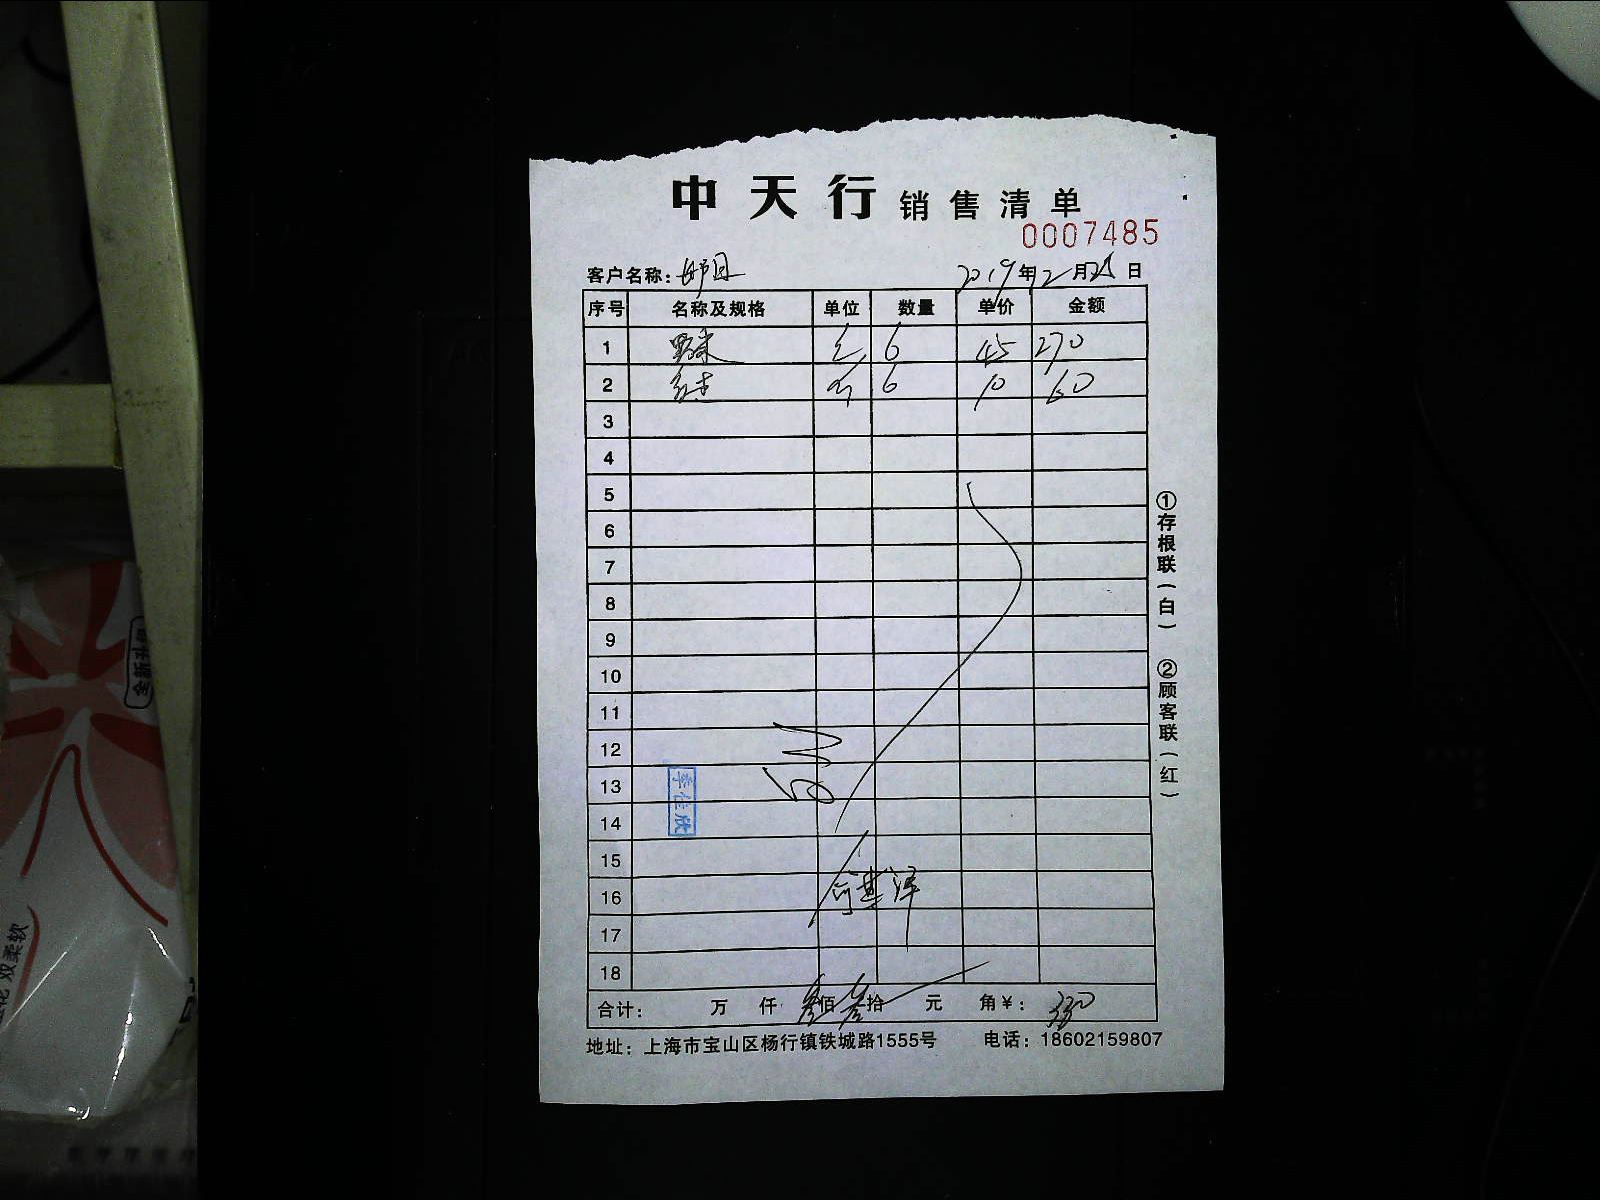 中天行 销售清单
0007485
客户名称: 2019年2月25日
序号 名称及规格 单位 数量 单价 金额
1 野米 6 45 270
2 6 10 60
3
4
5
6
7
8
9
10
11
12
13
14
15
16
17
18
合计: 万 仟 叁佰 叁拾 元 角¥: 330
地址: 上海市宝山区杨行镇铁城路1555号 电话: 18602159807
①存根联(白) ②顾客联(红)
李仕欣
全新升级
双柔软